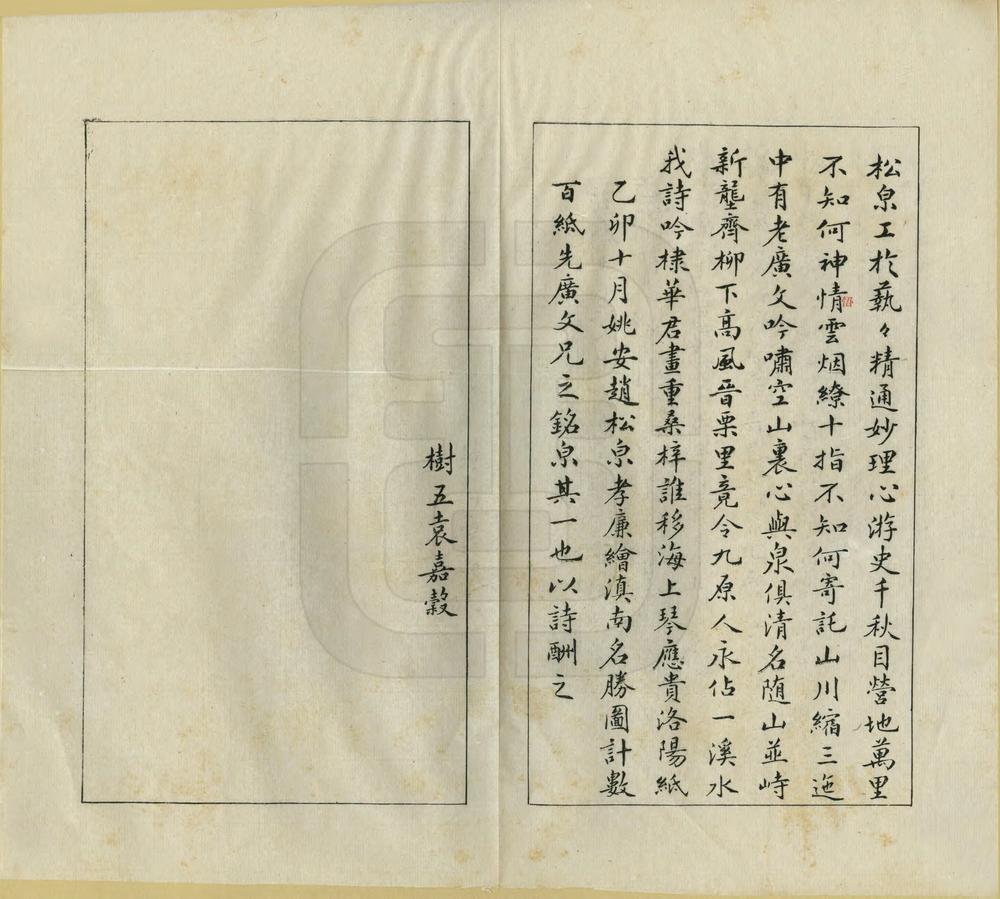 松泉工於藝々精通妙理心游史千秋目營地萬里
不知何神情雲烟繚十指不知何寄託山川縮三迤
悟
中有老廣文吟嘯空山裏心與泉俱清名随山並峙
新壟齊柳下高風晉栗里竟令九原人永佔一溪水
我詩吟棣華君畫重桑梓誰移海上琴應貴洛陽紙
乙卯十月姚安趙松泉孝廉繪滇南名勝圖計數
百紙先廣文兄之銘泉其一也以詩酬之
樹五袁嘉穀